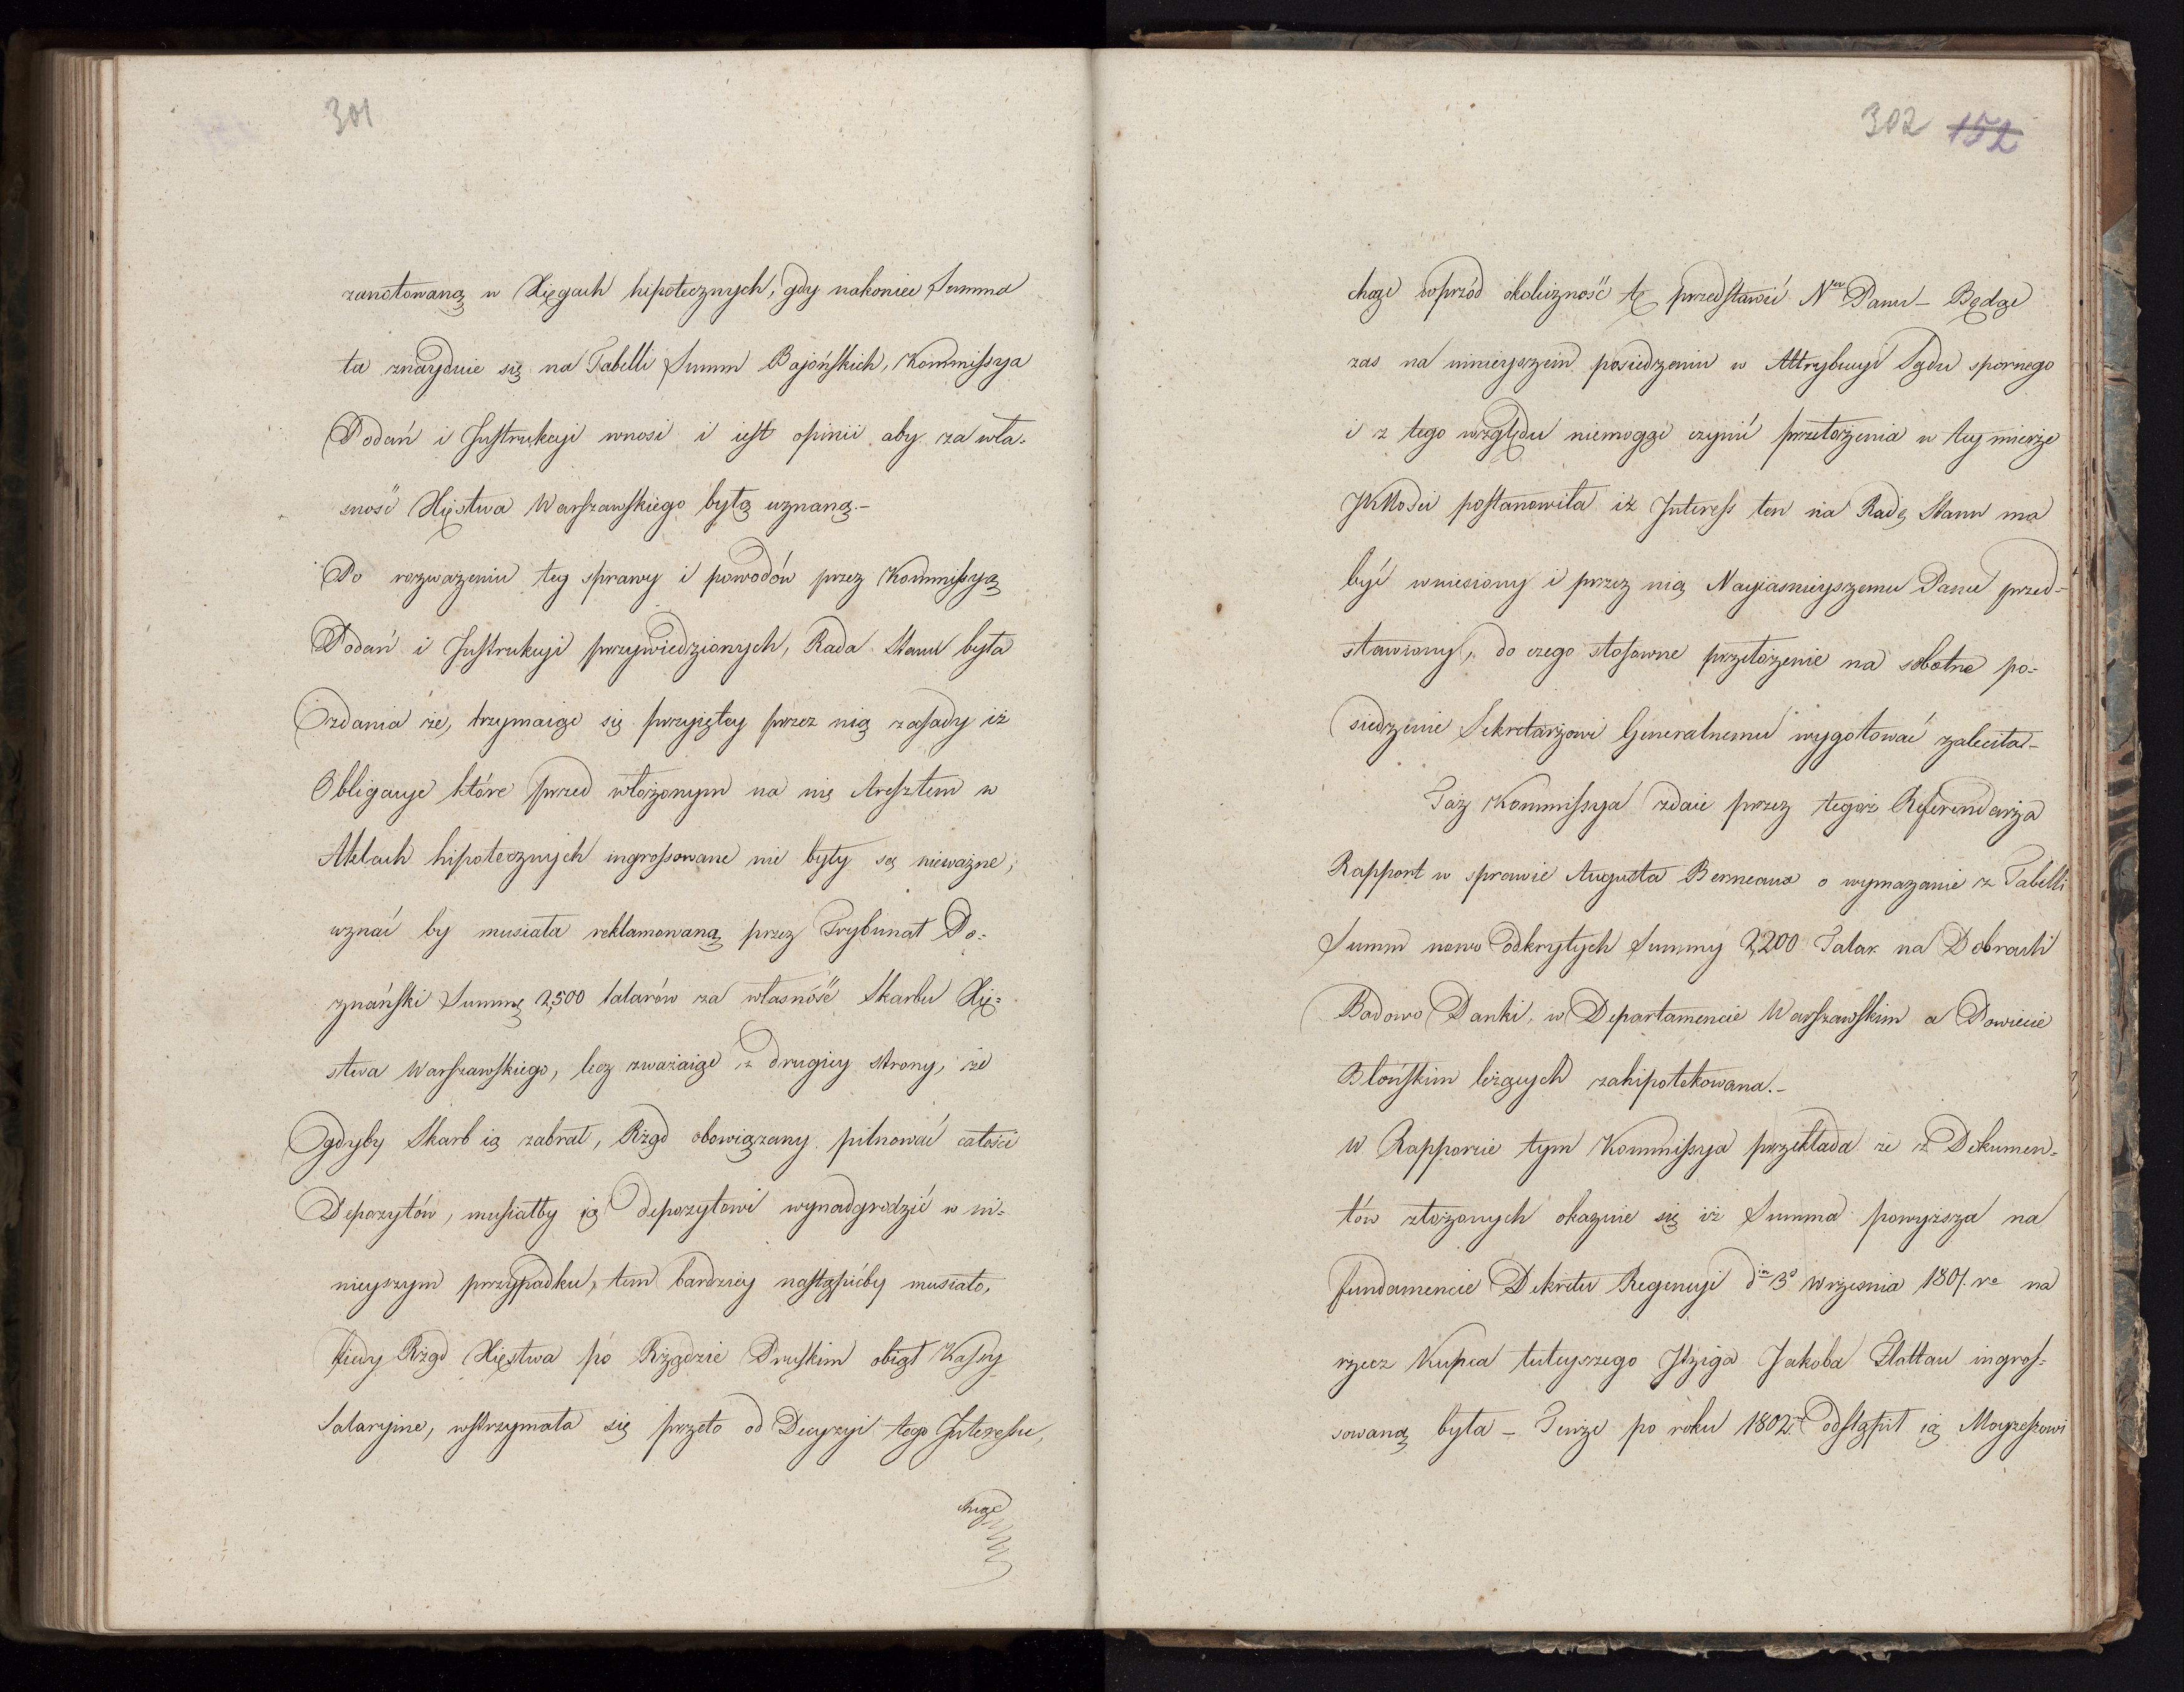 301
zanotowaną w Xięgach hipotecznych, gdy nakoniec Summa
ta znayduie się na Tabelli Summ Bajońskich, Kommissya
Podań i Instrukcyi wnosi i iest opinii aby za wła-
sność Xięstwa Warszawskiego byłą uznaną.-
Po rozważeniu tey sprawy i powodów przez Kommissyą
Podań i Instrukcyi przywiedzionych, Rada Stanu była
zdania że, trzymaiąc się przyiętey przez nią zasady iż
Obligacye które przed włożonym na nie Aresztem w
Aktach hipotecznych ingrossowane nie były są nieważne,
uznać by musiała reklamowaną przez Trybunał Po-
znański Summę 2,500 talarów za własność Skarbu Xię-
stwa Warszawskiego, lecz zważaiąc z drugiey strony, że
gdyby Skarb ią zabrał, Rząd obowiązany pilnować całości
Depozytów, musiałby ią depozytowi wynadgrodzić w ni-
nieyszym przypadku, tem bardziey nastąpićby musiało,
kiedy Rząd Xięstwa po Rządzie Pruskim objął Kassy
Salaryjne, wstrzymała się przeto od Decyzyi tego Interessu,
chcąc
302 152
chcąc wprzód okoliczność tę przedstawić Nmu Panu - Będąc
zas na ninieyszem posiedzeniu w Attrybucyi Sądu spornego
i z tego względu niemogąc czynić przełożenia w tey mierze
JKMości postanowiła iż Interess ten na Radę Stanu ma
być wniesiony i przez nią Nayiasnieyszemu Panu przed-
stawiony, do czego stosowne przełożenie na sobotne po-
siedzenie Sekretarzowi Generalnemu wygotować zaleciła-
Taż Kommissya zdaie przez tegoż Referendarza
Rapport w sprawie Augusta Berneaux o wymazanie z Tabelli
Summ nowo odkrytych Summy 2,200 Talar. na Dobrach
Badowo Danki, w Departamencie Warszawskim a Powiecie
Błońskim leżących zahipotekowana.-
W Rapporcie tym Kommissya przekłada że z Dokumen-
tów złożonych okazuie się iż Summa powyższa na
fundamencie Dekretu Regencyi din 3o Września 1801. re na
rzecz Kupca tuteyszego Itziga Jakoba Flattau ingros-
sowaną była - Tenże po roku 1802. odstąpił ią Moyzeszowi